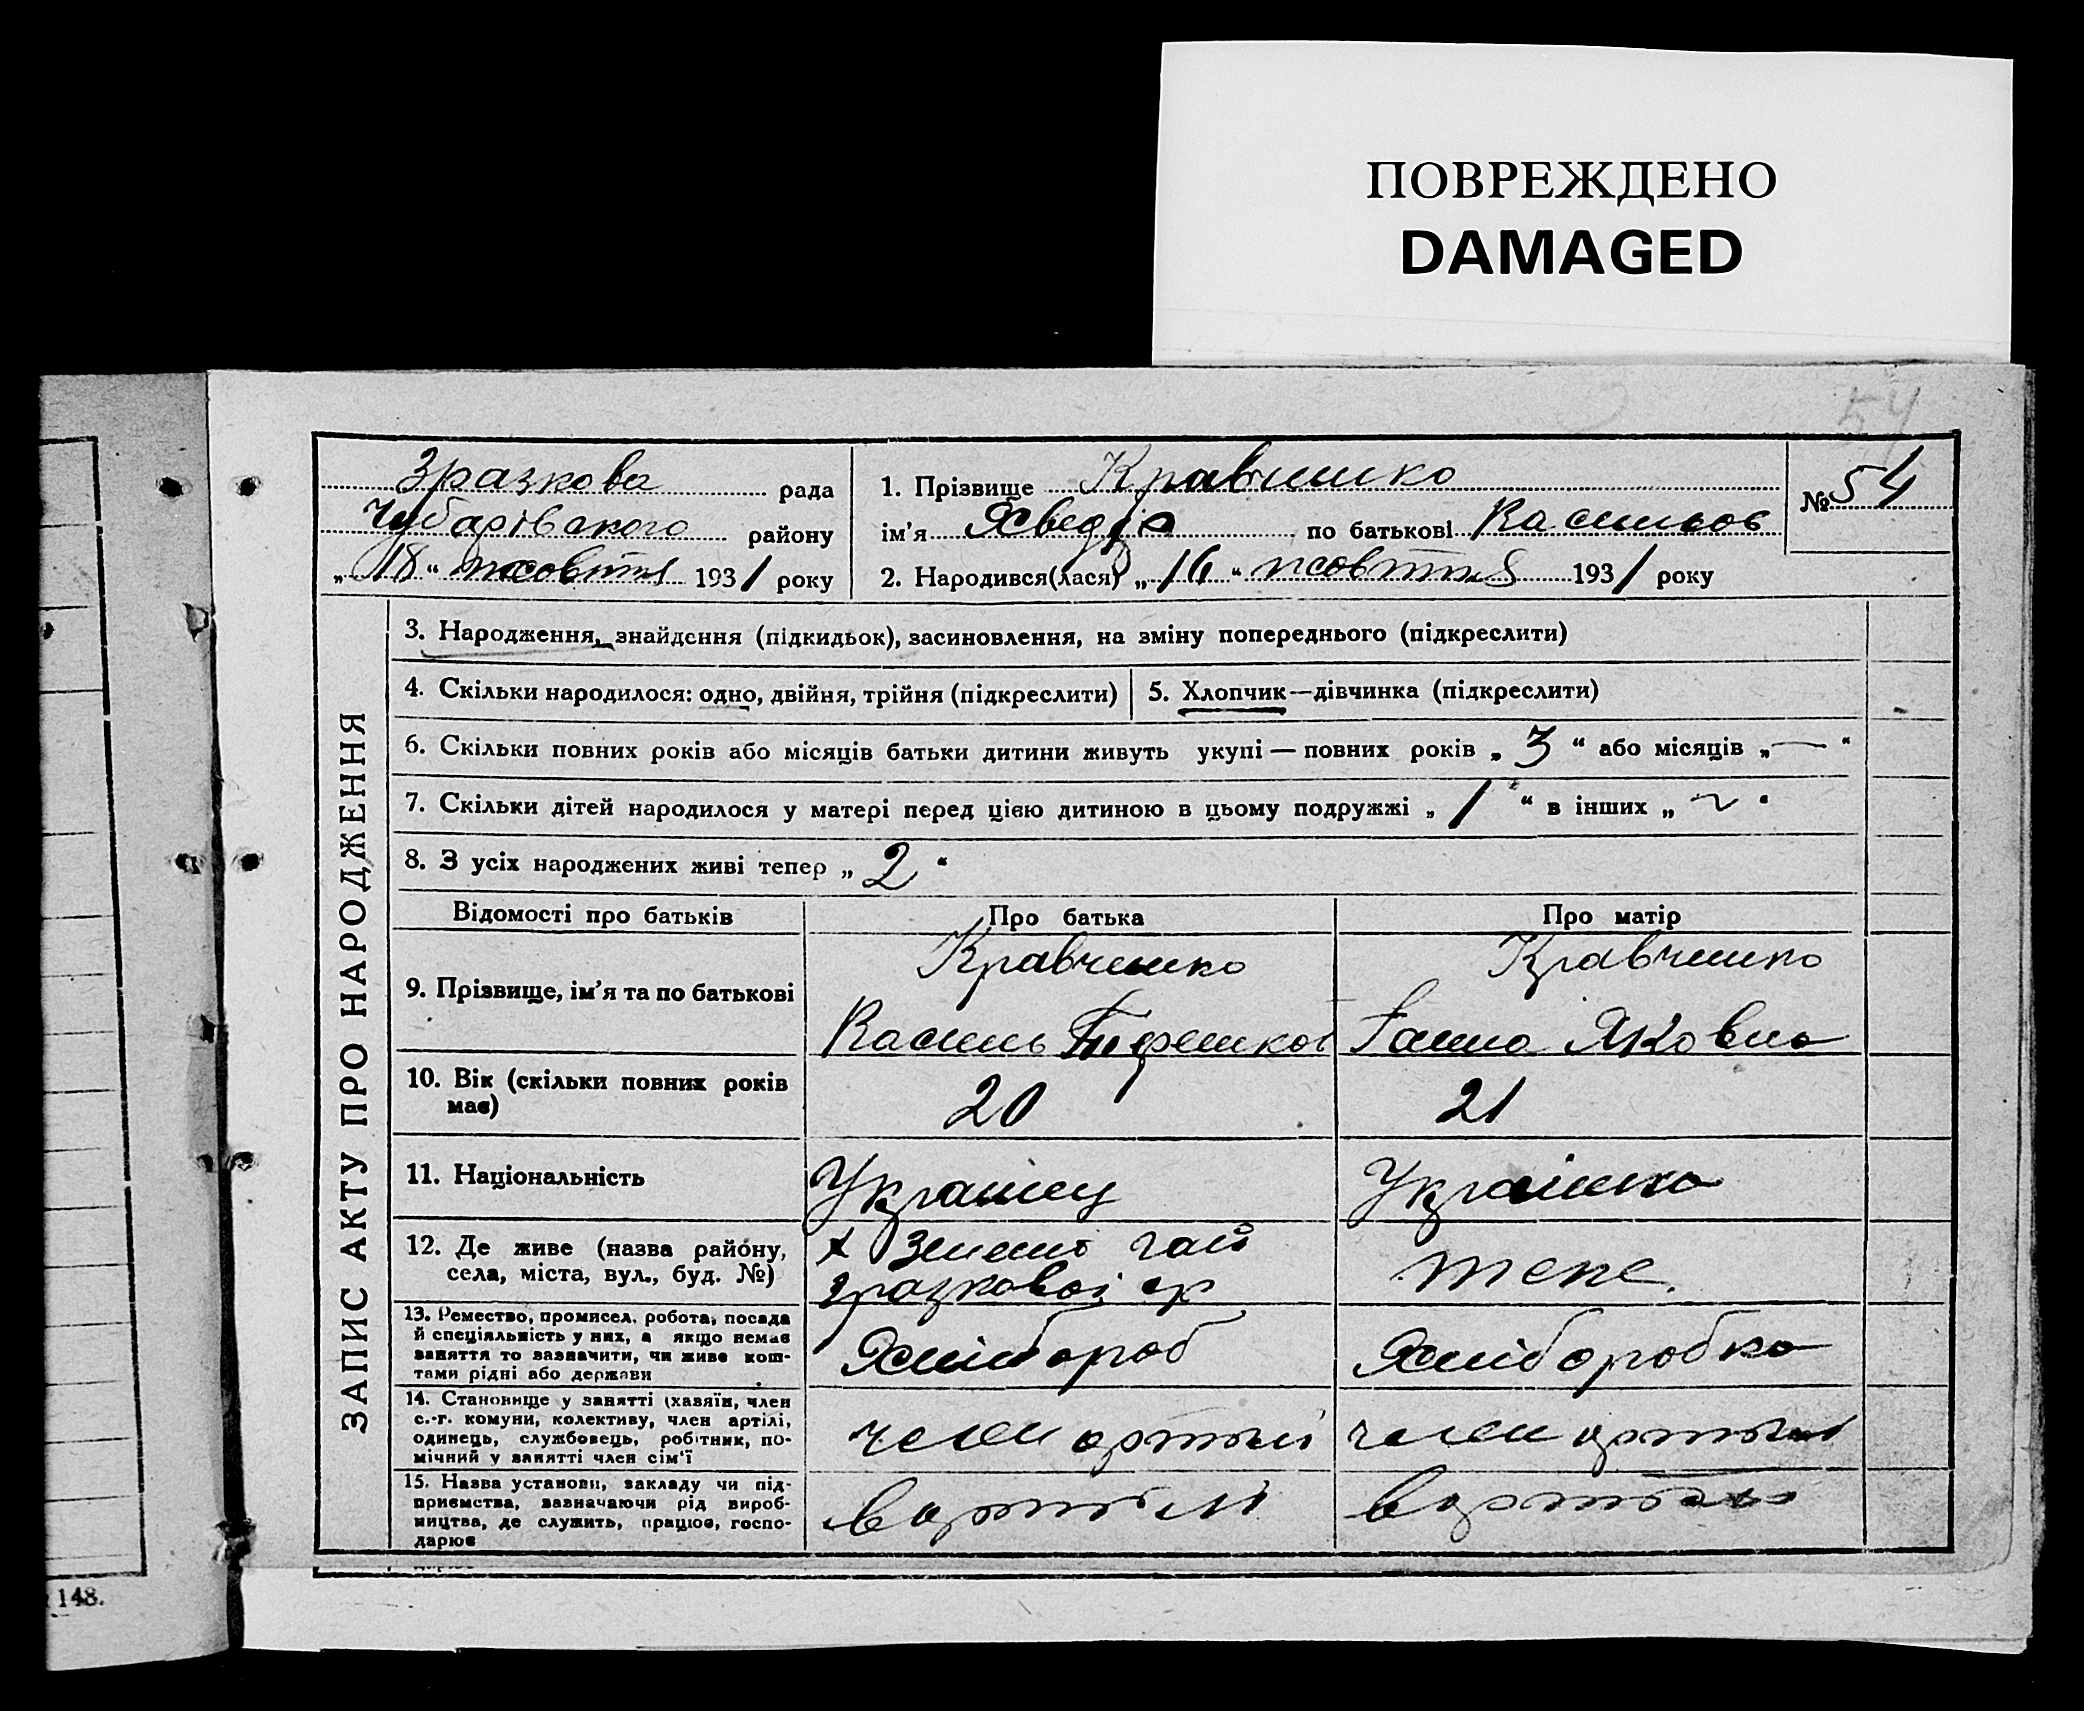 ПОВРЕЖДЕНО
DAMAGED
54
Зразкова рада
Чубарівського району
„ 18 “ жовтня 1931 року
1. Прізвище Кравченко
ім’я по батькові Васильов
2. Народився(лася) „ 16 “ жовтня 1931 року
№ 54
ЗАПИС АКТУ ПРО НАРОДЖЕННЯ
3. Народження, знайдення (підкидьок), засиновлення, на зміну попереднього (підкреслити)
4. Скільки народилося: одно, двійня, трійня (підкреслити)
5. Хлопчик—дівчинка (підкреслити)
6. Скільки повних років або місяців батьки дитини живуть укупі — повних років „ 3 “ або місяців „ — “
7. Скільки дітей народилося у матері перед цією дитиною в цьому подружжі „ 1 “ в інших „ ~ “
8. З усіх народжених живі тепер „ 2 “
Відомості про батьків
Про батька
Про матір
9. Прізвище, ім’я та по батькові
Кравченко
Василь
Кравченко
Ганна Яковна
10. Вік (скільки повних років
має)
20
21
11. Національність
Українец
Українка
12. Де живе (назва району,
села, міста, вул., буд. №)
х Зелений гай
Зразковоі ср
теже
13. Ремество, промисел, робота, посада
й спеціяльність у них, а якщо немає
заняття то зазначити, чи живе кош-
тами рідні або держави
Хлібороб
Хліборобка
14. Становище у занятті (хазяїн, член
с.-г. комуни, колективу, член артілі,
одинець, службовець, робітник, по-
мічний у занятті член сім’ї
член артілі
член артілі
15. Назва установи, закладу чи під-
приємства, зазначаючи рід вироб-
ництва, де служить, працює, госпо-
дарює
вартілі
вартілі
148.